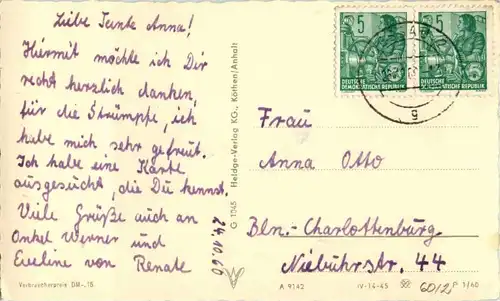 Liebe Tante Anna!
Hiermit möchte ich Dir
recht herzlich danken,
für die Strümpfe, ich
habe mich sehr gefreut.
Ich habe eine Karte
ausgesucht, die Du kennst.
Viele Grüße auch an
Onkel Werner und
Eveline von Renate
24.10.60
Verbraucherpreis DM -,15
G 1045 Heldge-Verlag KG., Köthen/Anhalt
5
DEUTSCHE
DEMOKRATISCHE REPUBLIK
5
DEUTSCHE
DEMOKRATISCHE REPUBLIK
g
Frau
Anna Otto
Bln.-Charlottenburg
Niebuhrstr. 44
A 9142
IV-14-45
60/2
P 1/60